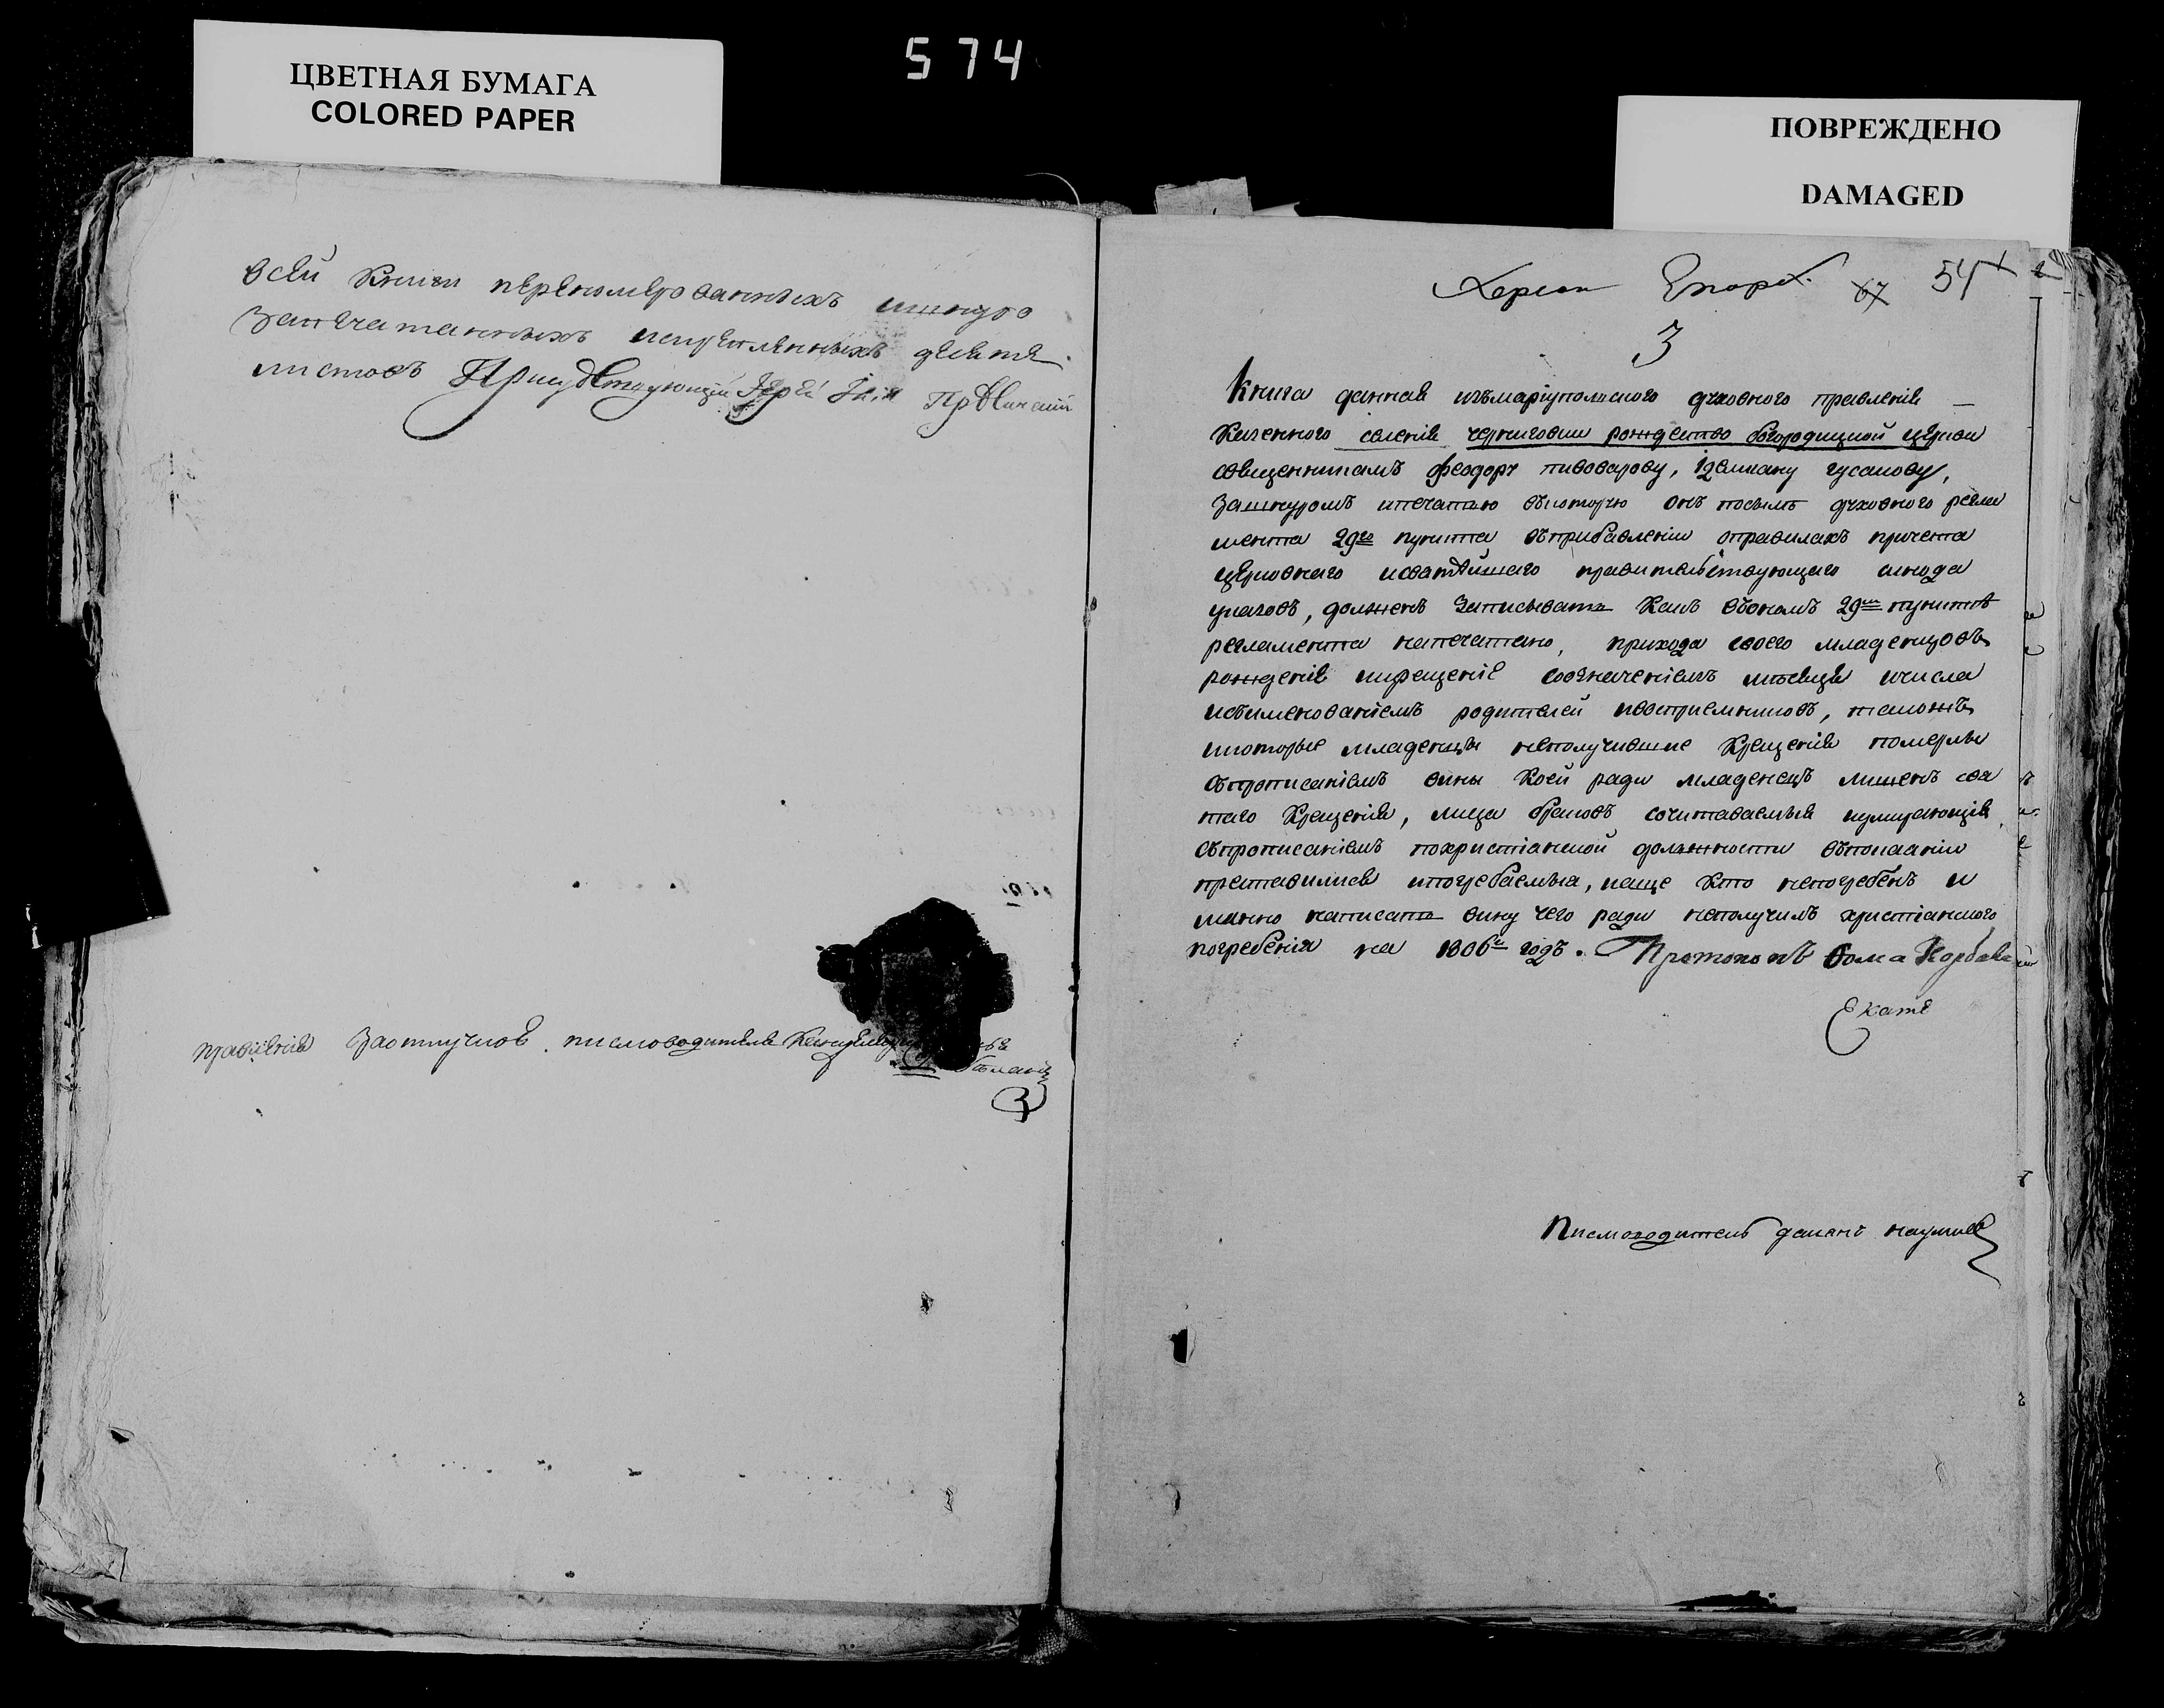 ЦВЕТНАЯ БУМАГА
COLORED PAPER
574
ПОВРЕЖДЕНО
DAMAGED
всей книги перенумерованныхъ шнуро
запечатанныхъ искрепленныхъ девять
листовъ Присудствующий Иерей
правления заотлучкою писмоводителя
Херсон Епарх. 67 54
3
Книга данная измариупольского духовного правления
Казенного селения черниговки рождество богородицкой церкви
священникамъ феодору пивоварову, идемиану гусакову,
зашнуромъ ипечатью вкоторую онъ посылъ духовного регла
мента 29го пункта вприбавлении оправилахъ причета
церковнаго исвятейшаго правительствующаго синода
указовъ, долженъ записывать какъ вономъ 29мъ пункте
регламента напечатано, прихода своего младенцовъ
рождения икрещение созначениемъ месяца ичисла
исъименованиемъ родителей ивосприемниковъ, такожъ
икоторые младенцы неполучившие крещения померли
съпрописаниемъ вины коей ради младенецъ лишенъ свя
таго крещения, лица браковъ сочитаваемыя иумирающия
съпрописаниемъ похристианской должности впокаянии
преставилися ипогребаемыя, иаще кто непогребенъ и
мянно написать вину чего ради неполучилъ христианского
погребения на 1806й годъ. Протопопъ Фома
Екате
Писмоводитель